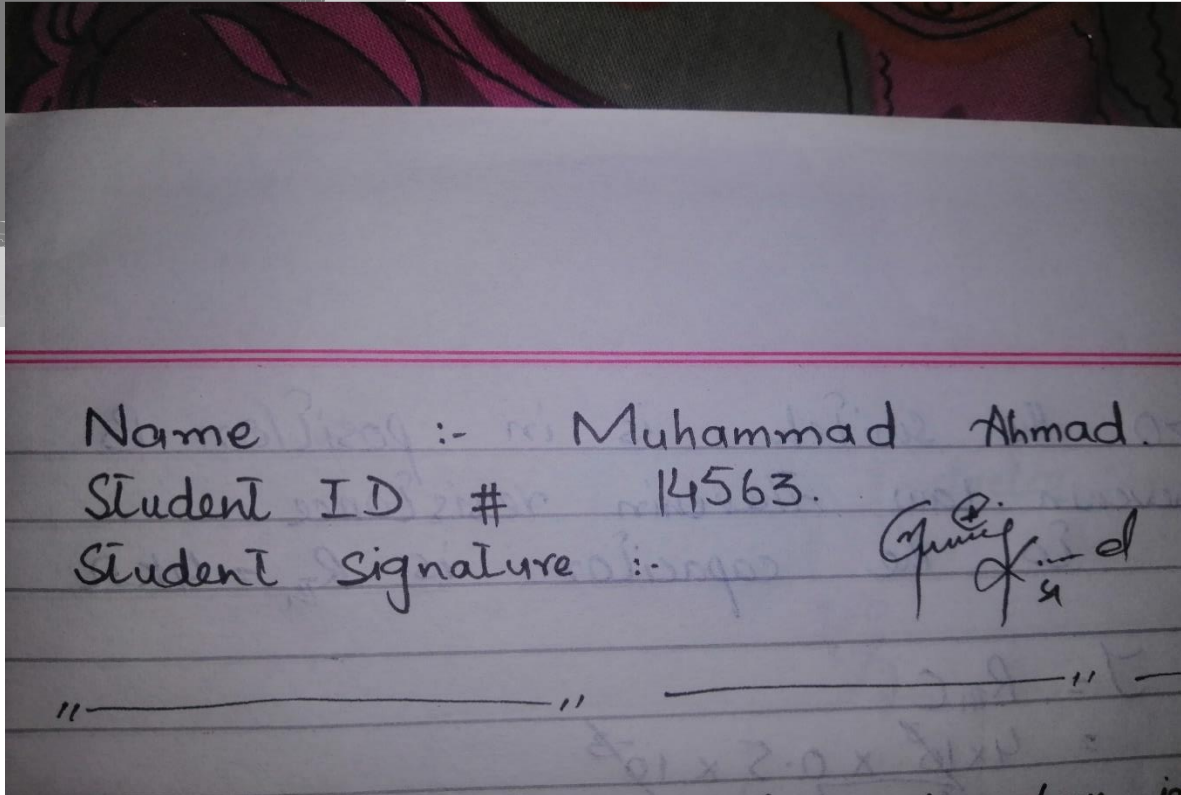 Name :- Muhammad Ahmad.
Student ID # 14563.
Student signature :-
"———" ———" —